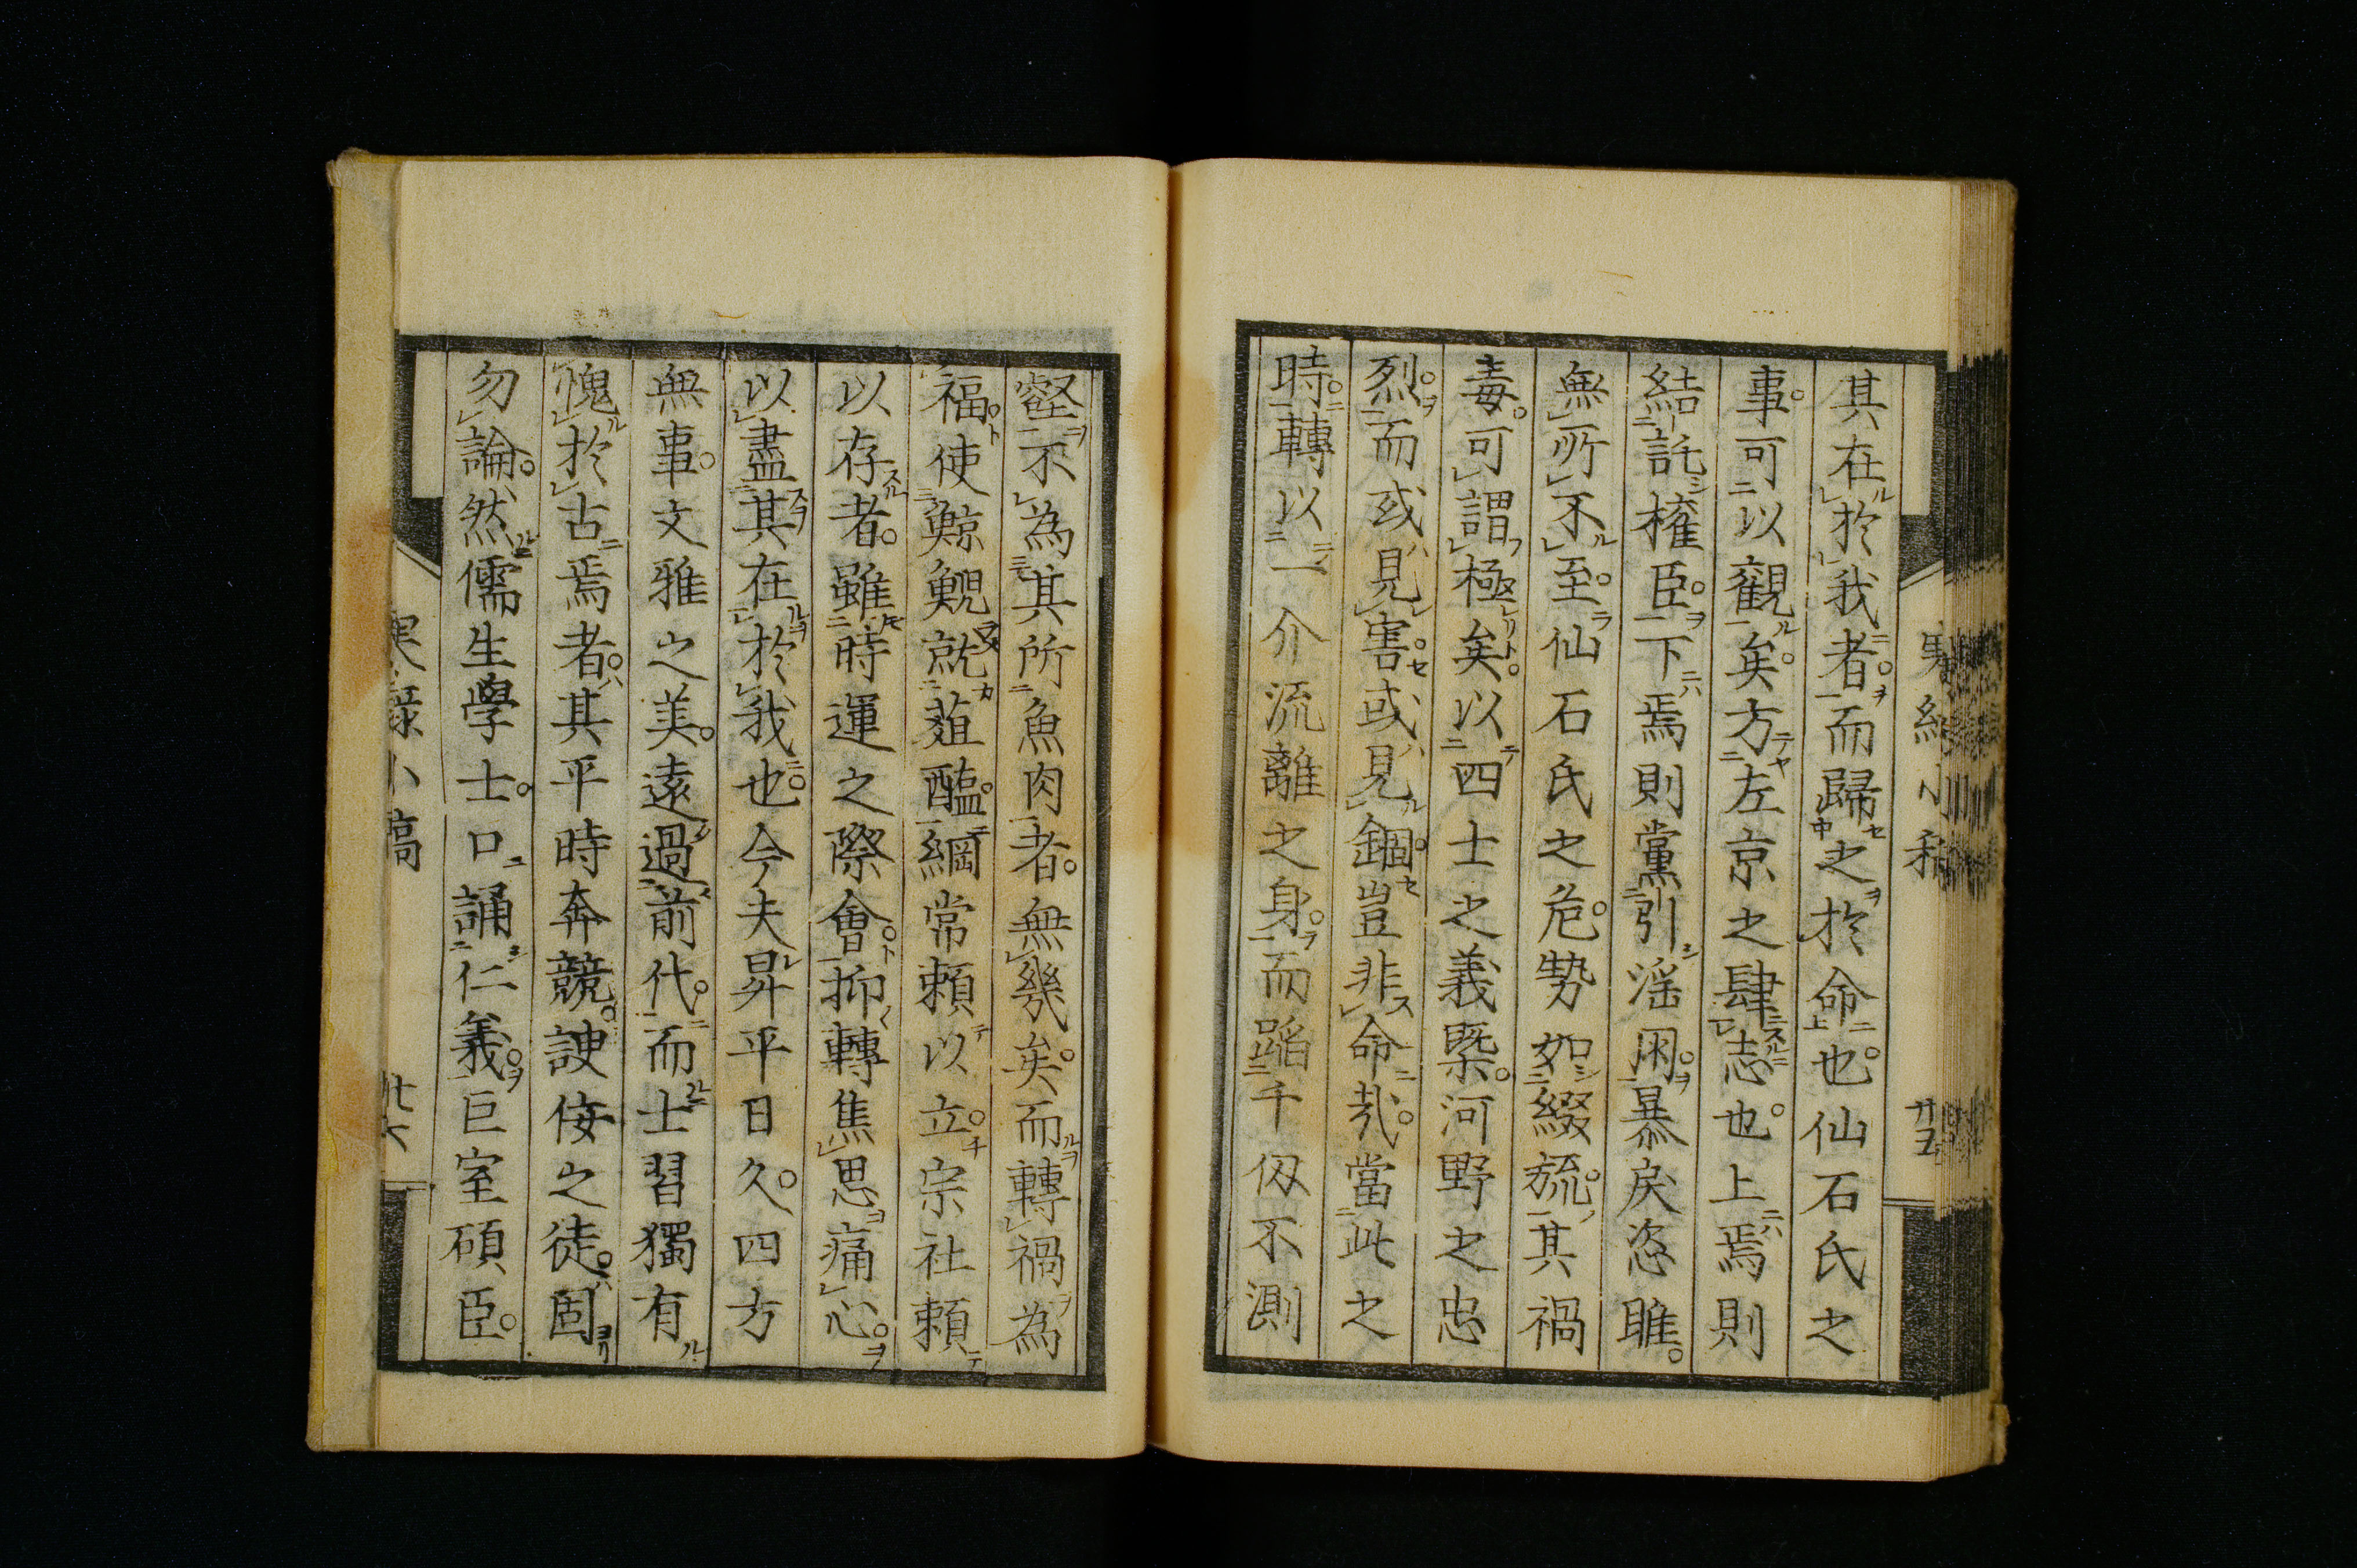 其在於我者而歸之於命也仙石氏之
事可以觀矣方左京之肆志也上焉則
結託権臣下焉則黨引滛朋暴戾恣睢
無所不至仙石氏之危勢如綴旒其禍
毒可謂極矣以四士之義槩河野之忠
烈而或見害或見錮豈非命哉當此之
時轉以一介流離之身而蹈千仭不測
壑不為其所魚肉者無幾矣而轉禍為
福使鯨鯢就葅醢綱常頼以立宗社頼
以存者雖時運之際會抑轉焦思痛心
以盡其在於我也今夫昇平日久四方
無事文雅之美遠過前代而士習獨有
愧於古焉者其平時奔競諛佞之徒固
勿論然儒生學士口誦仁義巨室碩臣
小稿
廿六